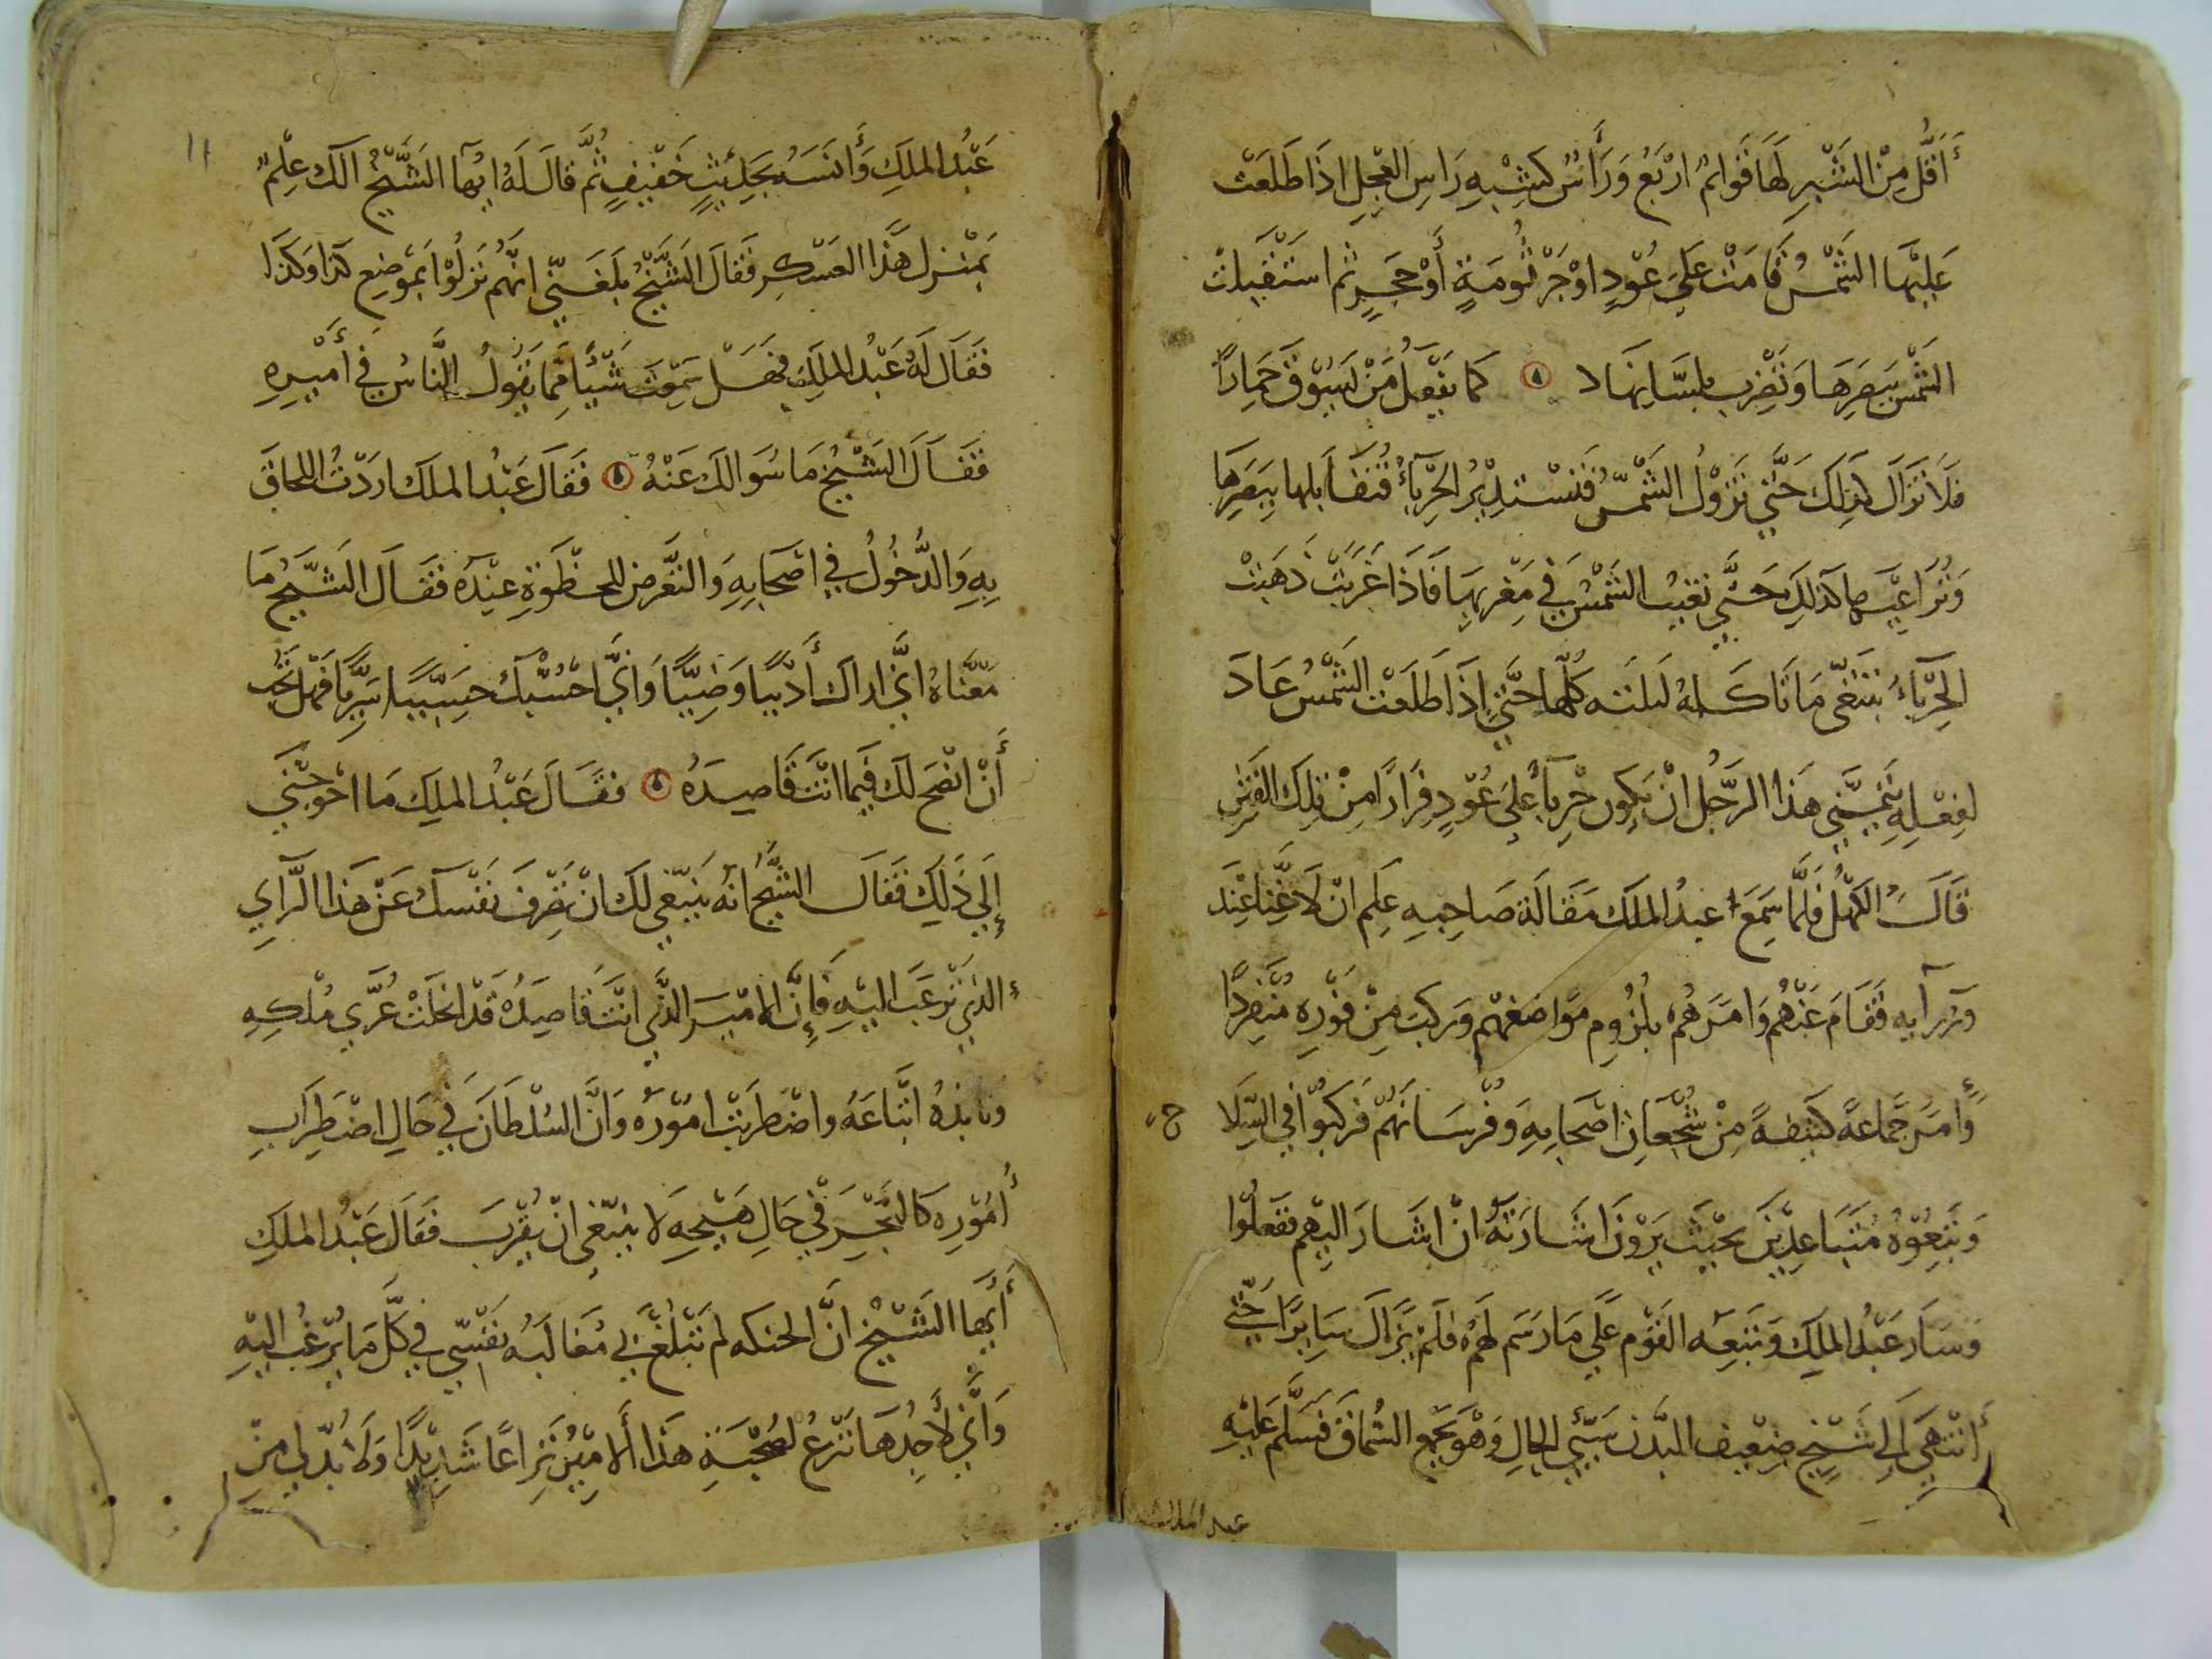 أَقَلُّ مِنَ الشَّبْرِ لَهَا قَوائمُ اَرْبَعُ وَرَأسٌ كَشِبْهِ رَاسِ العِجْلِ اذَا طَلَعَتْ
عَلِيْهَا الشَّمْسُ قَامَتْ عَلَى عُوْدٍ اوْ جُرْثُومَةٍ أوْ حَجَرٍ ثم اسْتَقْبَلتْ
الشَّمْسَ ببَصَرِهَا وَتَضْرِب بلسَانِهَا كَمَا يَفْعَلُ مَنْ يَسُوْقُ حِمَارًا
فَلَا تزَالَ كذلِكَ حَتَّى تَزُوْلُ الشَّمْسُ فَتَسْتَدِيْرُ الحِرْبَاءُ فتُقَابلها بِبَصَرِهَا
وَتُرَاعِيْهِا كذَلِكَ حَتَّى تغيْبُ الشَّمْسُ فِي مَغْرِبهَا فَاذَا غَرَبَتْ ذَهَبَتْ
الحِرْبَاءُ تبْتَغِي مَا تَاكُلهُ لَيلَتَه كلّها حَتَّى إذَا طَلَعَتْ الشَّمْسُ عَادَ
لفِعْلِهِ يَتَمَنَّى هَذا الرَّجُل انْ يَكوُن حِرْبَاءً عَلَى عُوْدٍ فِرَارًا مِنْ تِلكَ الفِتَنِ
قَالَ الكَهْلُ فَلَمَّا سَمِعَ عبدُ الملَك مَقَالَةَ صَاحِبِهِ عَلِمَ انْ لَا غِنَا عِنْدَ
وُزرَآيه فَقَامَ عَنْهُم وَامَرَهُمْ بلُزُوم مَوَاضِعَهُم وَركبَ مِنْ فَوْرِهِ مُنْفَرِدًا
وَأمَرَ جَمَاعَةً كَثيفَةً مِنْ شُجْعَانِ اصْحَابِهِ وَفُرْسَانَهُمْ فَركَبُوْا فِي السِّلَا ح
وَتَبِعُوْهُ مُتَبَاعِدِيْنَ بحَيْثُ يَرَوْنَ اشَارَتَهُ انْ اشَارَ اليْهِم فَفَعَلُوْا
وَسَارَ عَبْدُ الملِكِ وَتَبَعِهُ القَوْم عَلَى مَا رَسَم لَهُمْ فلَمْ يَزَالَ سَايِرًا حَتّى
انْتَهَى الى شَيْخٍ ضَعِيْفِ البَدَن سَيِّئِ الحالِ وَهْوَ يَجْمَع السُّمَاقَ فَسَلَّمَ عَلَيْهِ
عبد الملك
١١
عَبْدُ الملِكِ وَأنَسَهُ بِحَدِيْثٍ خَفِيْفٍ ثُمَّ قالَ لَهُ ايُّهَا الشَّيْخُ الَك عِلْمٌ
بمَنْزِل هَذَا العَسْكرِ فَقَالَ الشَّيْخُ بلَغَنِي انَّهُم نَزلُوْا بمَوْضِع كَذا وَكَذَا
فَقَالَ لَهُ عَبْدُ الملَكِ فهَلْ سَمِعْتَ شَيْئًا مِمَّا يَقُولُ النَّاسُ فِي أَمْيرِهِ
فَقَالَ الشَّيْخُ مَا سُوَالكَ عَنْهُ فَقَالَ عَبْدُ الملَك ارَدْتُ اللِحَاقَ
بِهِ وَالدُّخُوْلُ فِي اصْحَابِهِ وَالتَّعَرض للحَظْوَةِ عِنْدَهُ فَقَالَ الشَّيْخُ مَا
مَعْنَاهُ انِّي اراك أَدِيْبًا وَضِيًّا وَانِّي احْسُبكَ حَسِيْبًا سَرِيًّا فَهَل تحِبُّ
أَنْ انْصَحَ لَك فيمَا انْتَ قَاصِدَهُ فقَالَ عَبْدُ الملِكِ مَا احْوَجَنِي
إلَى ذَلِكَ فَقَالَ الشَّيْخُ انهُ يَنْبَغِي لَكَ انْ تَصْرِفَ نَفْسَكَ عَنْ هَذا الرَّايِ
الذِي نَزعْتَ اليْهِ فَإنَّ الامِيْرَ الذِّي انْتَ قَاصِدُهُ قَدْ انحَلَتْ عُرَى مُلكِهِ
ونَابذهُ اتْبَاعَهُ واضْطرَبَتْ امُوْرُه وَانَّ السُلْطَانَ فِي حَالِ اضْطِرَابِ
أُمُوْرِه كَالبَحْرِ فِي حَالِ هَيْجِهِ لا ينْبَغِي انْ يُقْرَبَ فَقَالَ عَبْدُ الملَكِ
أَيُّهَا الشَّيْخ انَّ الحنكه لم تَبْلُغ بِي مُغَالَبَه نفْسِي فِي كلَّ مَا يُرْغَبُ اليْهِ
وَانَّي لأَجِدُهَا تَنْزعُ لصُحْبَةِ هَذا الأمِيْرُ نِزَاعًا شَدِيْدًا وَلا بُدّ لِي مِنْ